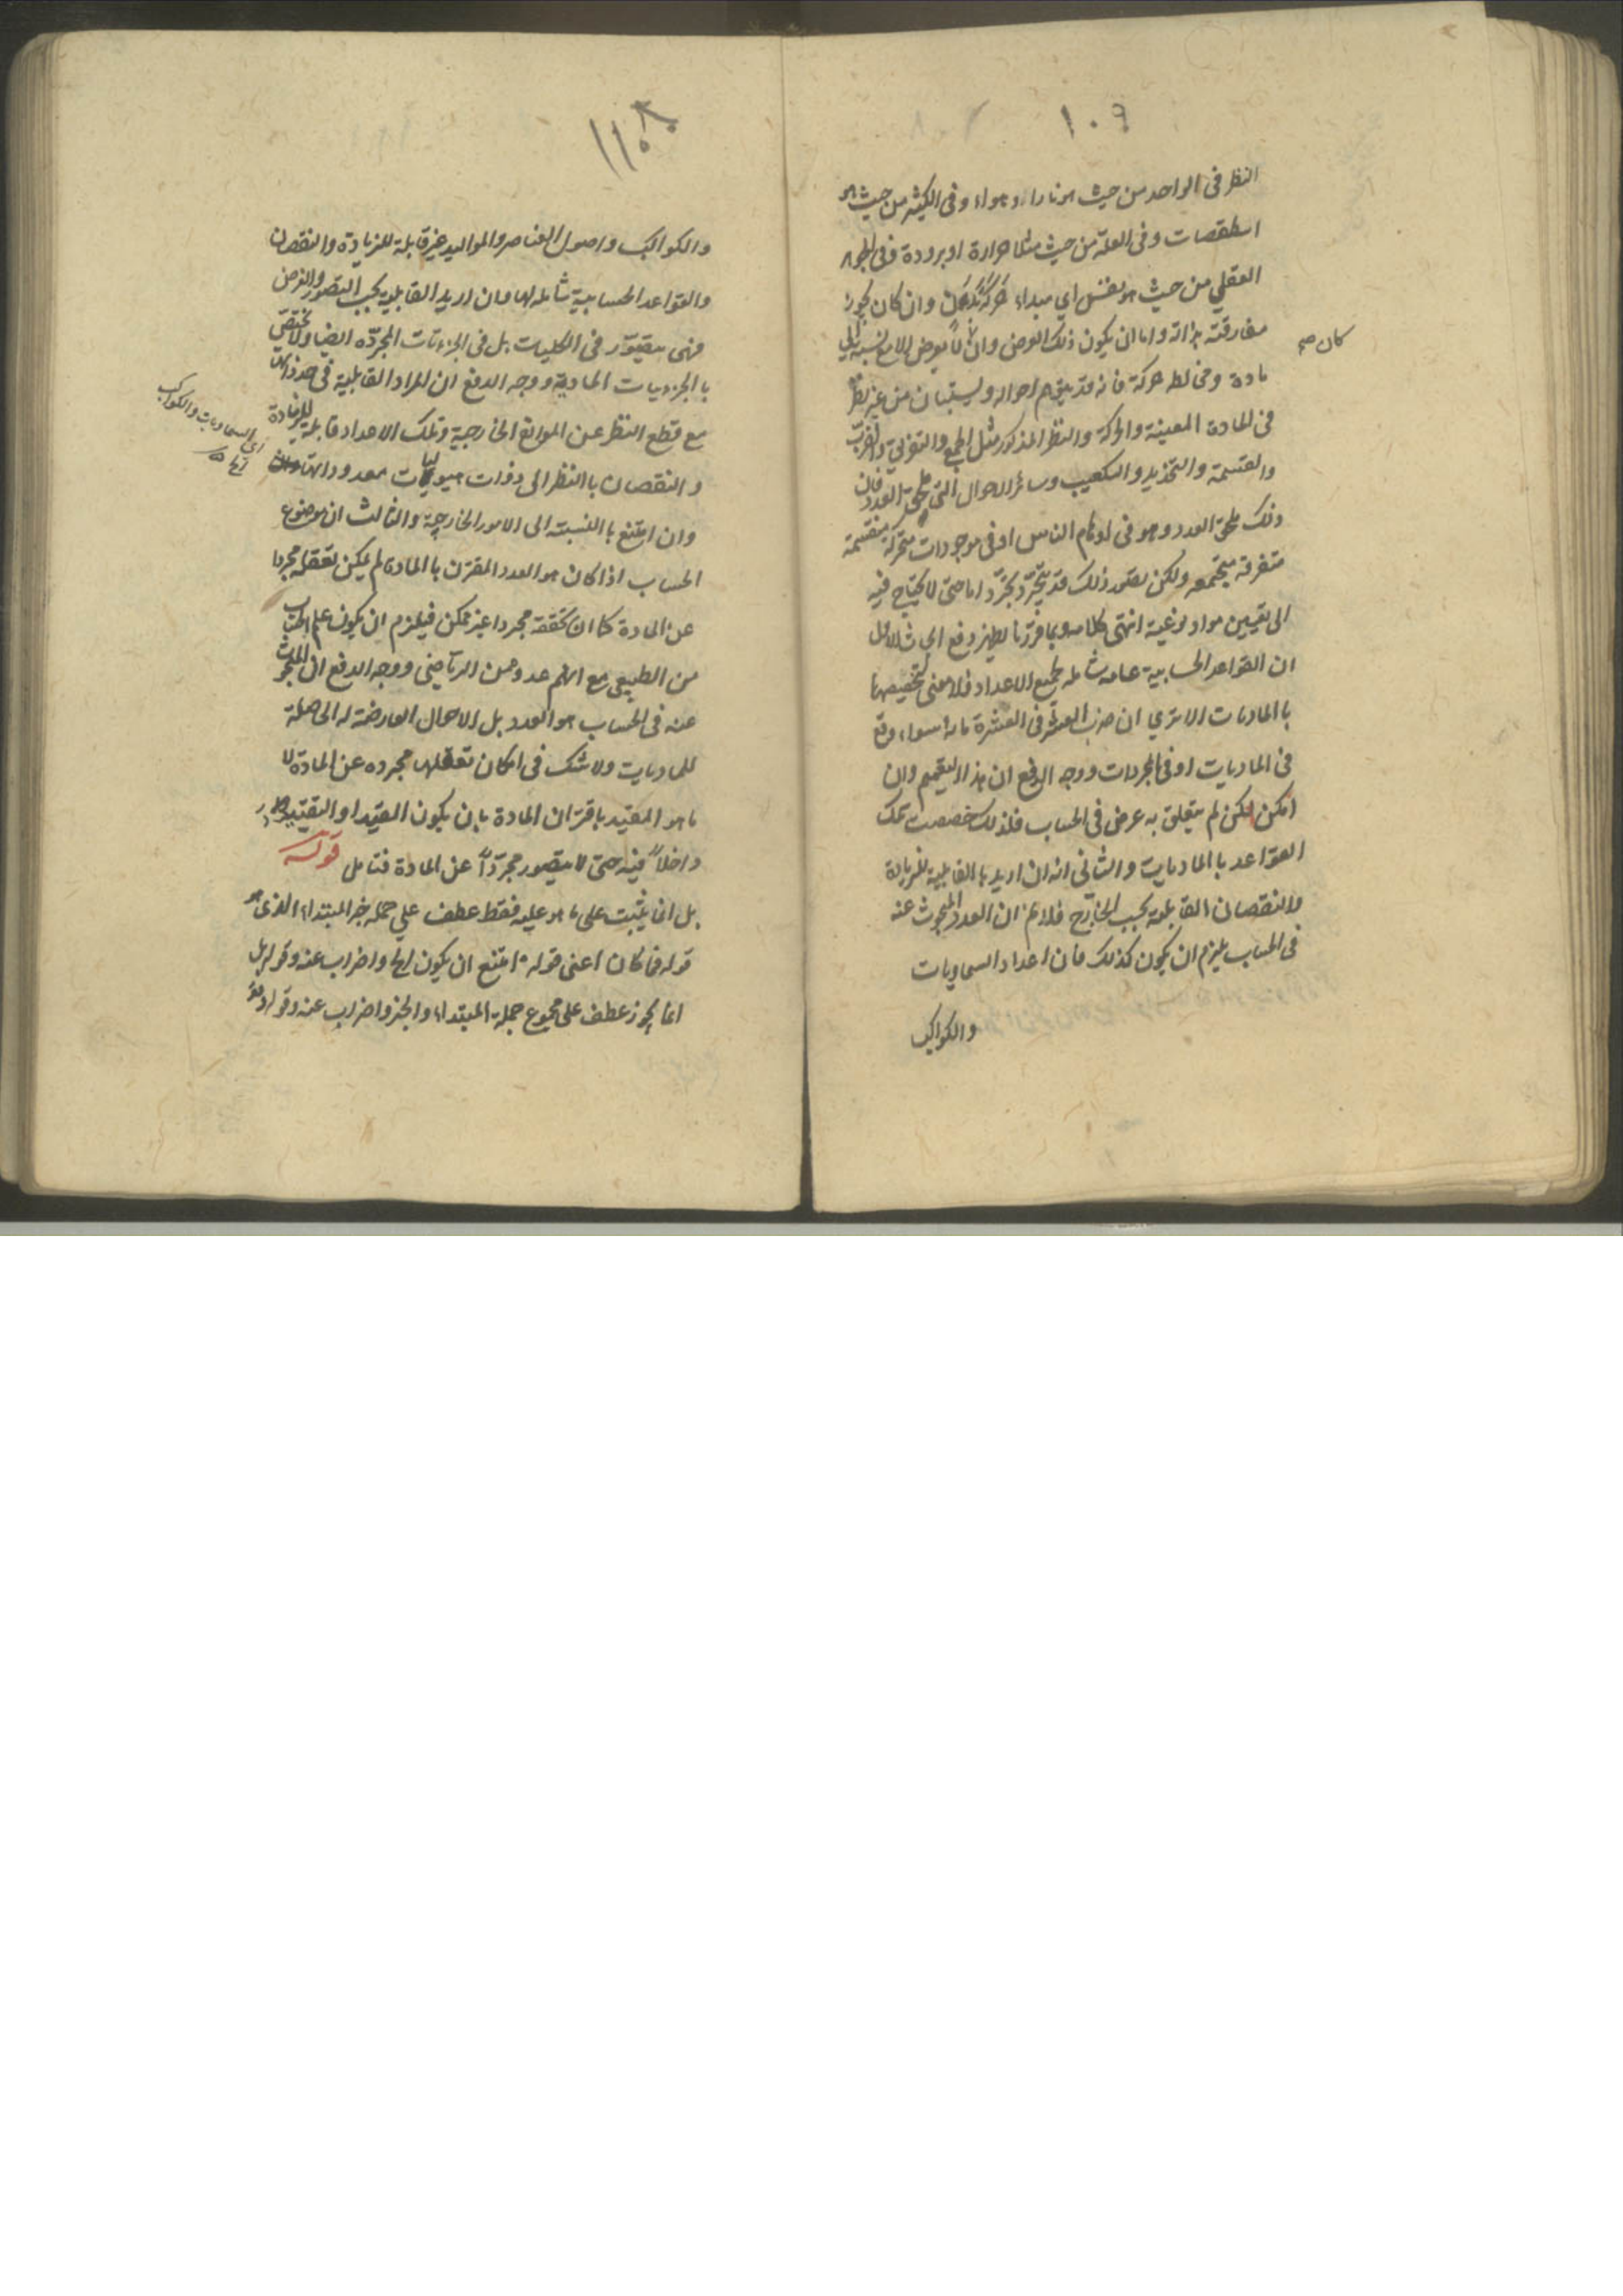 ١٠٩
النظر فى الواحد من حيث هو نار او هواء وفى الكثير من حيث هو
اسطقصات وفى العلة من حيث مثلا حرارة او برودة وفى الجوهر
العقلي من حيث هو نفس اي مبداء حركة بدن وان كان يجوز
مفارقته بذاته واما ان يكون ذلك العرض وان كان لا يعرض الا مع نسبة الي
كان صح
مادة ومخالطه حركة فانه قد يتوهم احواله ويستبان من غير نظر
فى المادة المعينة والحركة والنظر المذكور مثل الجمع والتفريق والضرب
والقسمة والتجذير والتكعيب وسائر الاحوال التي تلحق العدد فان
ذلك يلحق العدد وهو فى اوهام الناس او فى موجودات متحركة منقسمة
متفرقة مجتمعه ولكن تصور ذلك قد يتجرد تجردا ما حتى لا يحتاج فيه
الى تعيين مواد نوعية انتهى كلامه وبما قررنا يظهر دفع ابحاث الاول
ان القواعد الحسابية عامة شامله لجميع الاعداد فلا معنى لتخصيصها
بالماديات الا تري ان ضرب العشرة فى العشرة مائة سواء وقع
فى الماديات او فى المجردات ووجه الدفع ان هذا التعميم وان
امكن لكن لم يتعلق به غرض فى الحساب فلذلك خصصت تلك
القواعد بالماديات والثانى انه ان اريد بالقابلية للزيادة
والنقصان القابلية بحسب الخارج فلا نم ان العدد المبحوث عنه
فى الحساب يلزم ان يكون كذلك فان اعداد السماويات
والكواكب
١١٠
والكواكب واصول العناصر والمواليد غير قابلة للزيادة والنقصان
والقواعد الحسابية شاملة لها وان اريد القابلية بحسب التصور والفرض
فهى يتصور فى الكليات بل فى الجزئيات المجرده ايضا ولا يختص
بالجزئيات المادية ووجه الدفع ان المراد القابلية فى حد ذاتها
مع قطع النظر عن الموانع الخارجية وتلك الاعداد قابلة للزيادة
اى السماويات والكواكب
والنقصان بالنظر الى ذوات هيوليات معدوداتها
وان امتنع بالنسبة الى الامور الخارجية والثالث ان موضوع
الحساب اذا كان هو العدد المقترن بالمادة لم يمكن تعقله مجردا
عن المادة كما ان تحققه مجردا غير ممكن فيلزم ان يكون علم الحساب
من الطبيعى مع انهم عدوه من الرياضى ووجه الدفع ان المبحوث
عنه فى الحساب هو العدد بل الاحوال العارضة له الحاصلة
للماديات ولا شك فى امكان تعقلها مجرده عن المادة لا
ما هو المقيد باقتران المادة بان يكون القيد او التقييد
داخلاً فيه حتى لا يتصور مجرداً عن المادة فتامل قوله
بل انما يثبت على ما هو عليه فقط عطف علي جمله خبر المبتداء الذى هو
قوله فما كان اعنى قوله امتنع ان يكون لها واضراب عنه وقوله بل
انما يجوز عطف على مجموع جملة المبتداء والخبر واضراب عنه وقوله